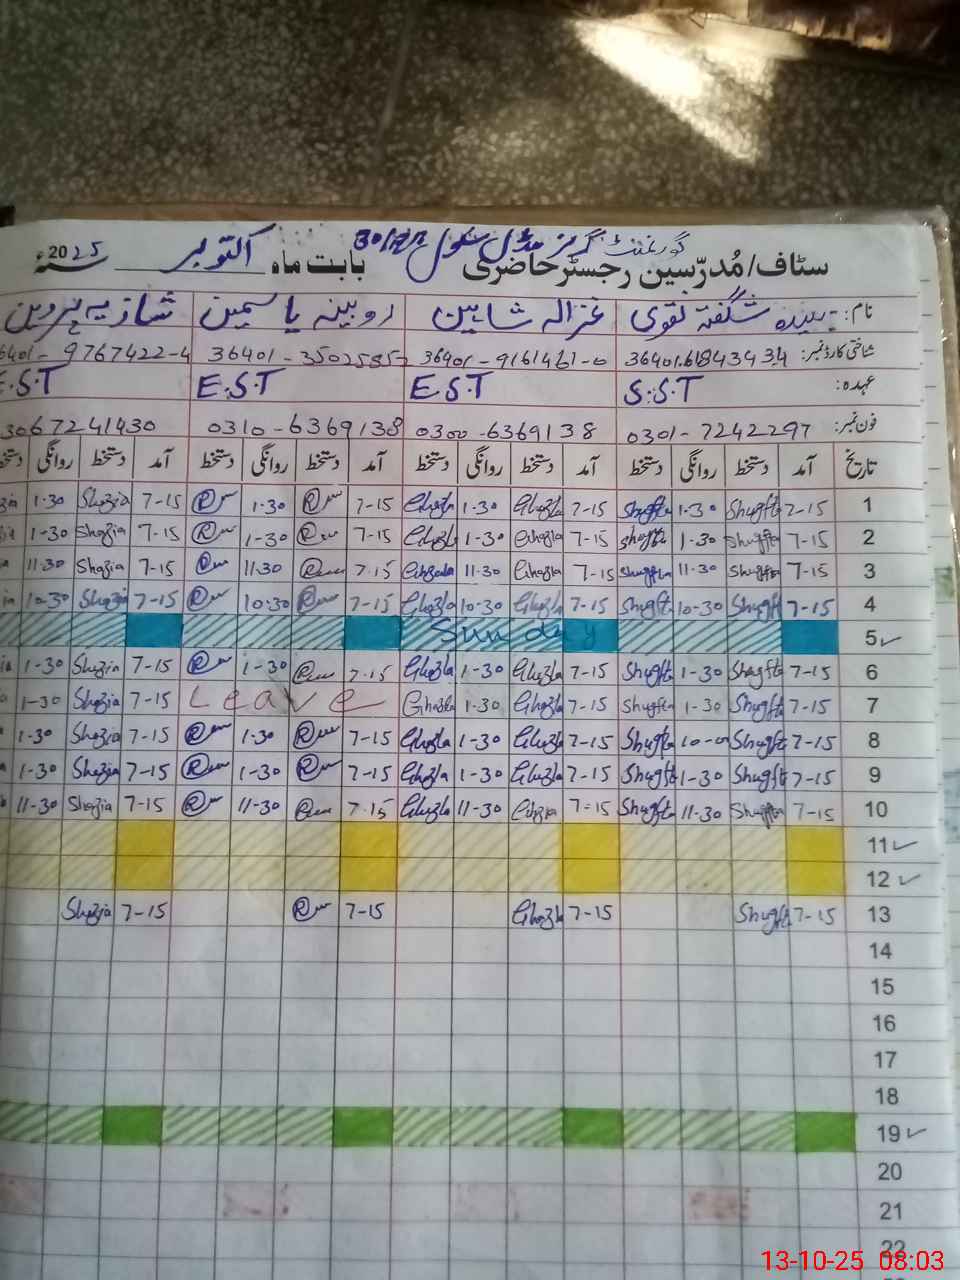 گورنمنٹ گرلز مڈل سکول
سٹاف/مُدرّسین رجسٹر حاضری بابت ماہ اکتوبر 2025ء
نام: سیدہ شگفتہ نقوی غزالہ شاہین روبینہ یاسمین شازیہ پروین
شناختی کارڈ نمبر: 36401-9161461-0 9767422-4
عہدہ: S.S.T E.S.T E.S.T E.S.T
فون نمبر: 0301-7242297 0300-6369138 0310-6369138 3067241430
تاریخ آمد دستخط روانگی دستخط آمد دستخط روانگی دستخط آمد دستخط روانگی دستخط آمد دستخط روانگی
1 7-15 Shugfta 1-30 Shugfta 7-15 Ghazla 1-30 Ghazla 7-15 1-30 7-15 Shazia 1-30
2 7-15 Shugfta 1-30 Shugfta 7-15 Ghazla 1-30 Ghazla 7-15 1-30 7-15 Shazia 1-30
3 7-15 Shugfta 11-30 Shugfta 7-15 Ghazla 11-30 Ghazla 7-15 11-30 7-15 Shazia 11-30
4 7-15 Shugfta 10-30 Shugfta 7-15 Ghazla 10-30 Ghazla 7-15 10-30 7-15 Shazia 10-30
5 Sunday
6 7-15 Shugfta 1-30 Shugfta 7-15 Ghazla 1-30 Ghazla 7-15 1-30 7-15 Shazia 1-30
7 7-15 Shugfta 1-30 Shugfta 7-15 Ghazla 1-30 Ghazla Leave 7-15 Shazia 1-30
8 7-15 Shugfta Shugfta 7-15 Ghazla 1-30 Ghazla 7-15 1-30 7-15 Shazia 1-30
9 7-15 Shugfta 1-30 Shugfta 7-15 Ghazla 1-30 Ghazla 7-15 1-30 7-15 Shazia 1-30
10 7-15 Shugfta 11-30 Shugfta 7-15 Ghazla 11-30 Ghazla 7-15 11-30 7-15 Shazia 11-30
11
12
13 7-15 Shugfta 7-15 Ghazla 7-15 7-15 Shazia
14
15
16
17
18
19
20
21
22
13-10-25 08:03